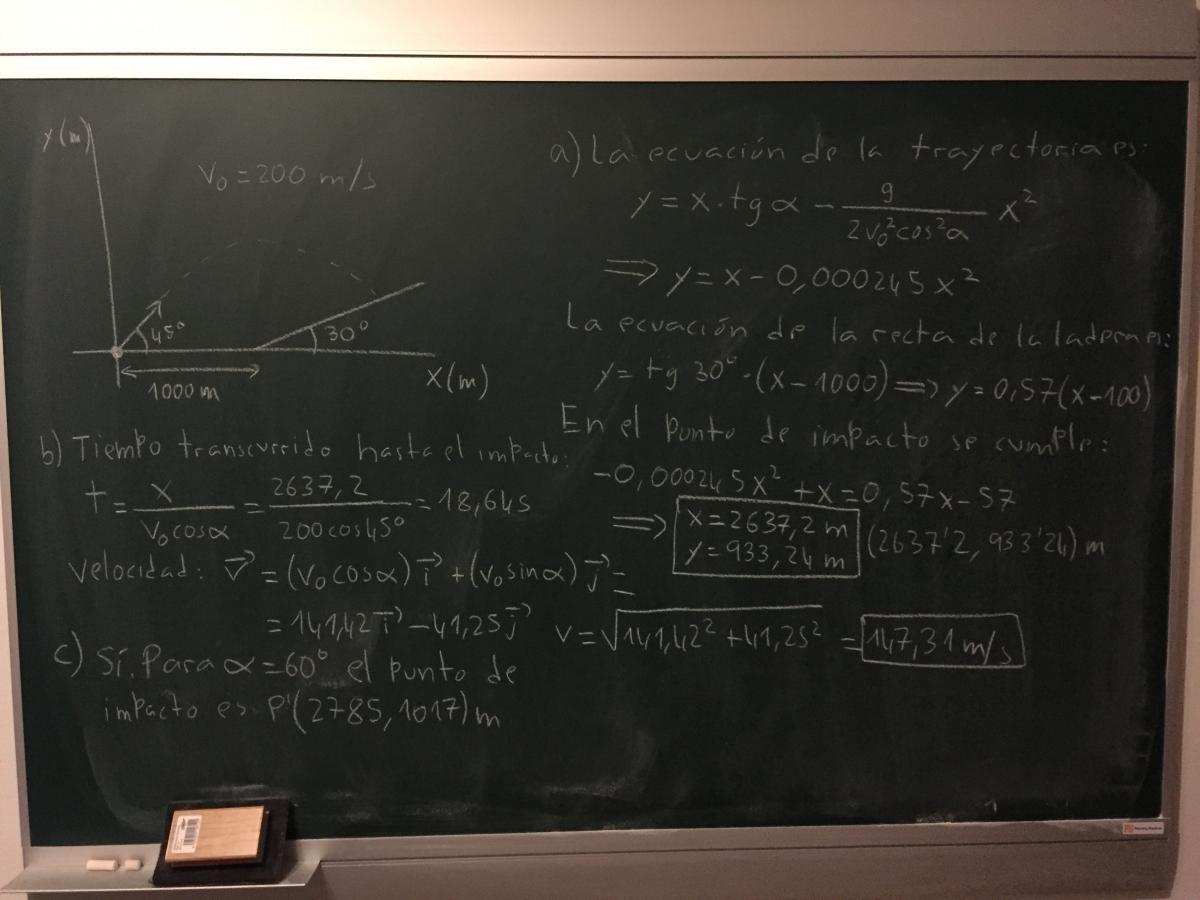 y(m)
V₀ = 200 m/s
45°
30°
1000 m
X(m)
a) La ecuación de la trayectoria es:
y = x · tg α - g / (2v₀²cos²α) x²
⟹ y = x - 0,000245 x²
La ecuación de la recta de la ladera es:
y = tg 30° · (x - 1000) ⟹ y = 0,57(x-100)
En el punto de impacto se cumple:
-0,000245x² + x = 0,57x - 57
⟹ x = 2637,2 m
y = 933,24 m
(2637'2, 933'24) m
b) Tiempo transcurrido hasta el impacto:
t = x / (V₀ cosα) = 2637,2 / (200 cos 45°) = 18,64s
Velocidad: v⃗ = (v₀ cosα) i⃗ + (v₀ sinα) j⃗ =
= 141,42 i⃗ - 41,25 j⃗
v = √(141,42² + 41,25²) = 147,31 m/s
c) Sí. Para α = 60° el punto de
impacto es P'(2785, 1017) m